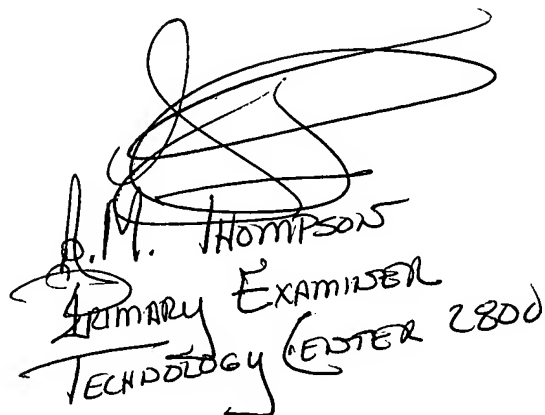 M. THOMPSON
PRIMARY EXAMINER
TECHNOLOGY CENTER 2800